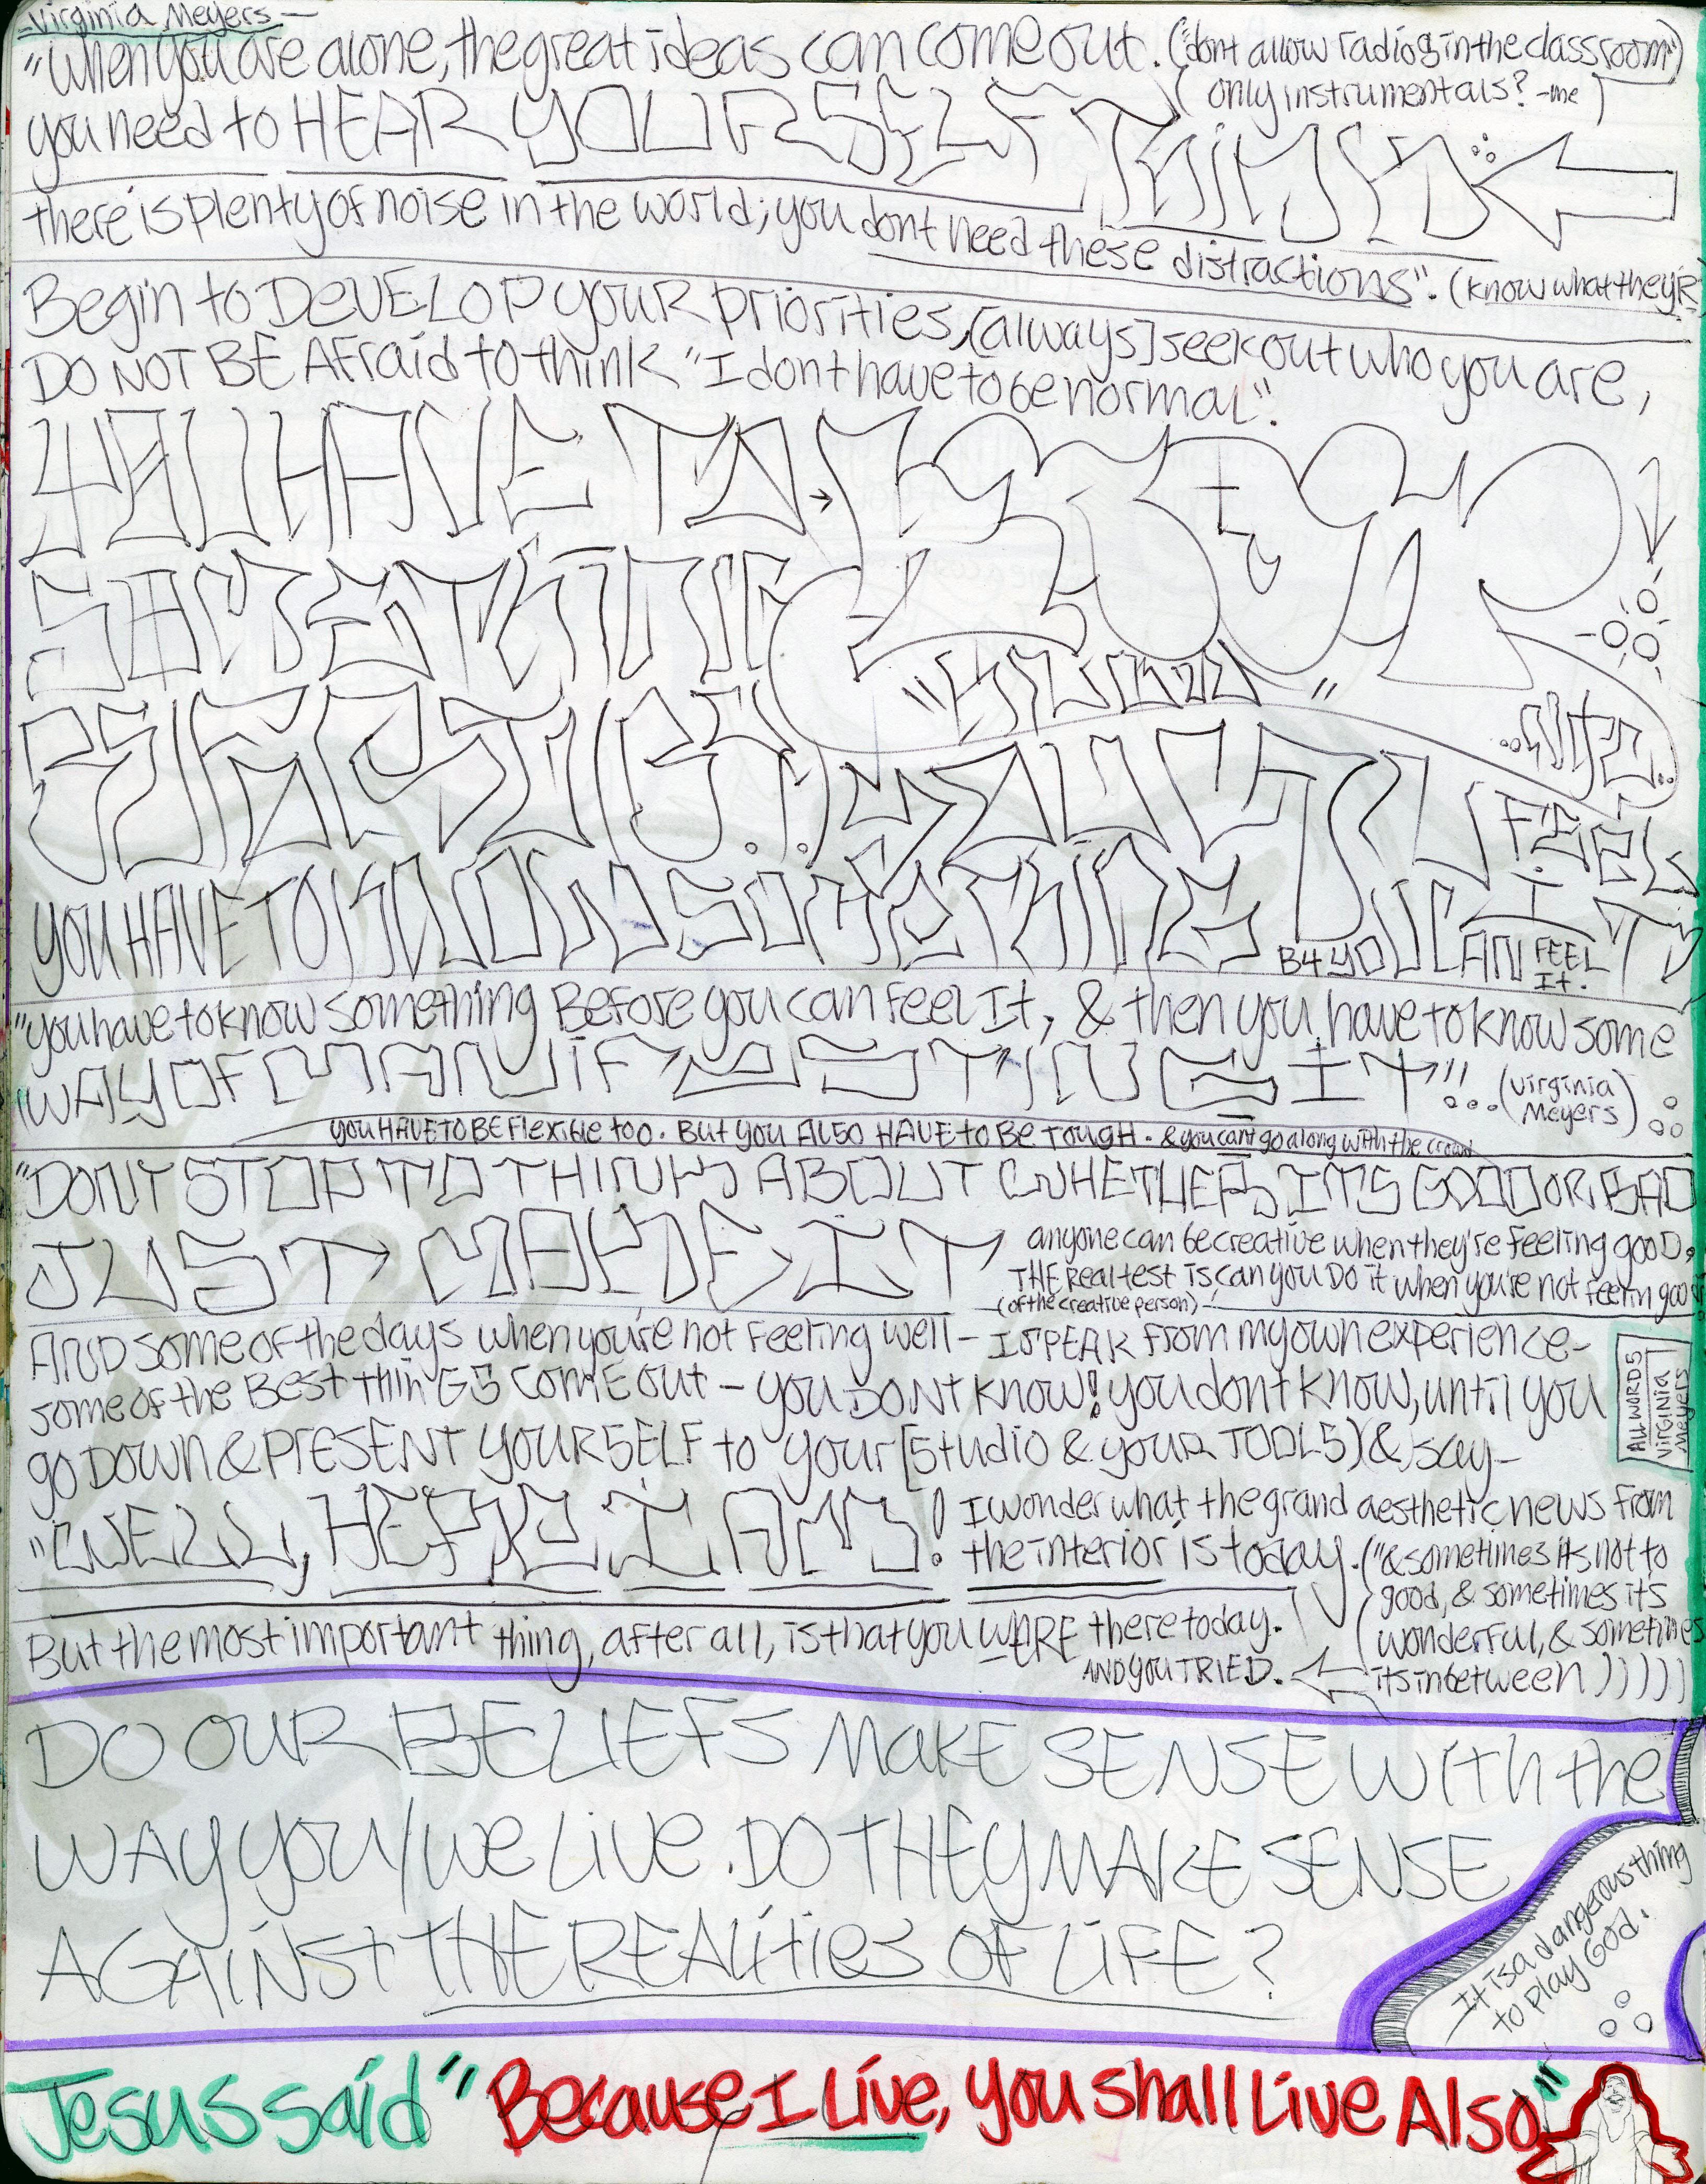 Virginia Meyers —
"When you are alone, the great ideas can come out. ("dont allow radios in the classroom")
only instrumentals? -me
you need to HEAR YOURSELF THINK
there is plenty of noise in the world; you dont need these distractions". (know what they R)
Begin to DEVELOP your priorities, [always] seek out who you are,
DO NOT BE AFraid to think "I dont have to be normal".
YOU HAVE TO
SOMETHING
BEFORE YOU CAN FEEL IT
YOU HAVE TO KNOW SOMETHING B4 YOU CAN FEEL It.
"you have to know something Before you can Feel It, & then you have to know some
WAY OF MANIFESTING IT"!! ... (Virginia Meyers)
you HAVE TO BE Flexible too. But you ALSO HAVE to BE TOUGH. & you cant go along with the crowd
"DONT STOP TO THINK ABOUT WHETHER ITS GOOD OR BAD
JUST MAKE IT
anyone can be creative when they're feeling gooD,
THE Real test is can you Do it when you're not Feelin good
(of the creative person)
AND some of the days when you're not Feeling well - I SPEAK From my own experience-
some of the Best thinGS COME out - you DONt KNOW! you dont know, until you
go DOWN & PreSENT YOURSELF to your [Studio & your TOOLS) & say-
ALL WORDS VIRGINIA Meyers
"WELL, HERE I AM!
I wonder what the grand aesthetic news From
the interior is today.
("& sometimes its not to
good, & sometimes it's
wonderful, & sometimes
its inbetween)))))
But the most important thing, after all, is that you WERE there today.
AND you TRIED.
DO OUR BELIEFS MaKE SENSE With the
WAY you/we Live. DO THEY MAKE SENSE
AGAINSt THE REALities OF LiFE?
It is a dangerous thing
to play God.
Jesus said "Because I Live, you shall Live Also"